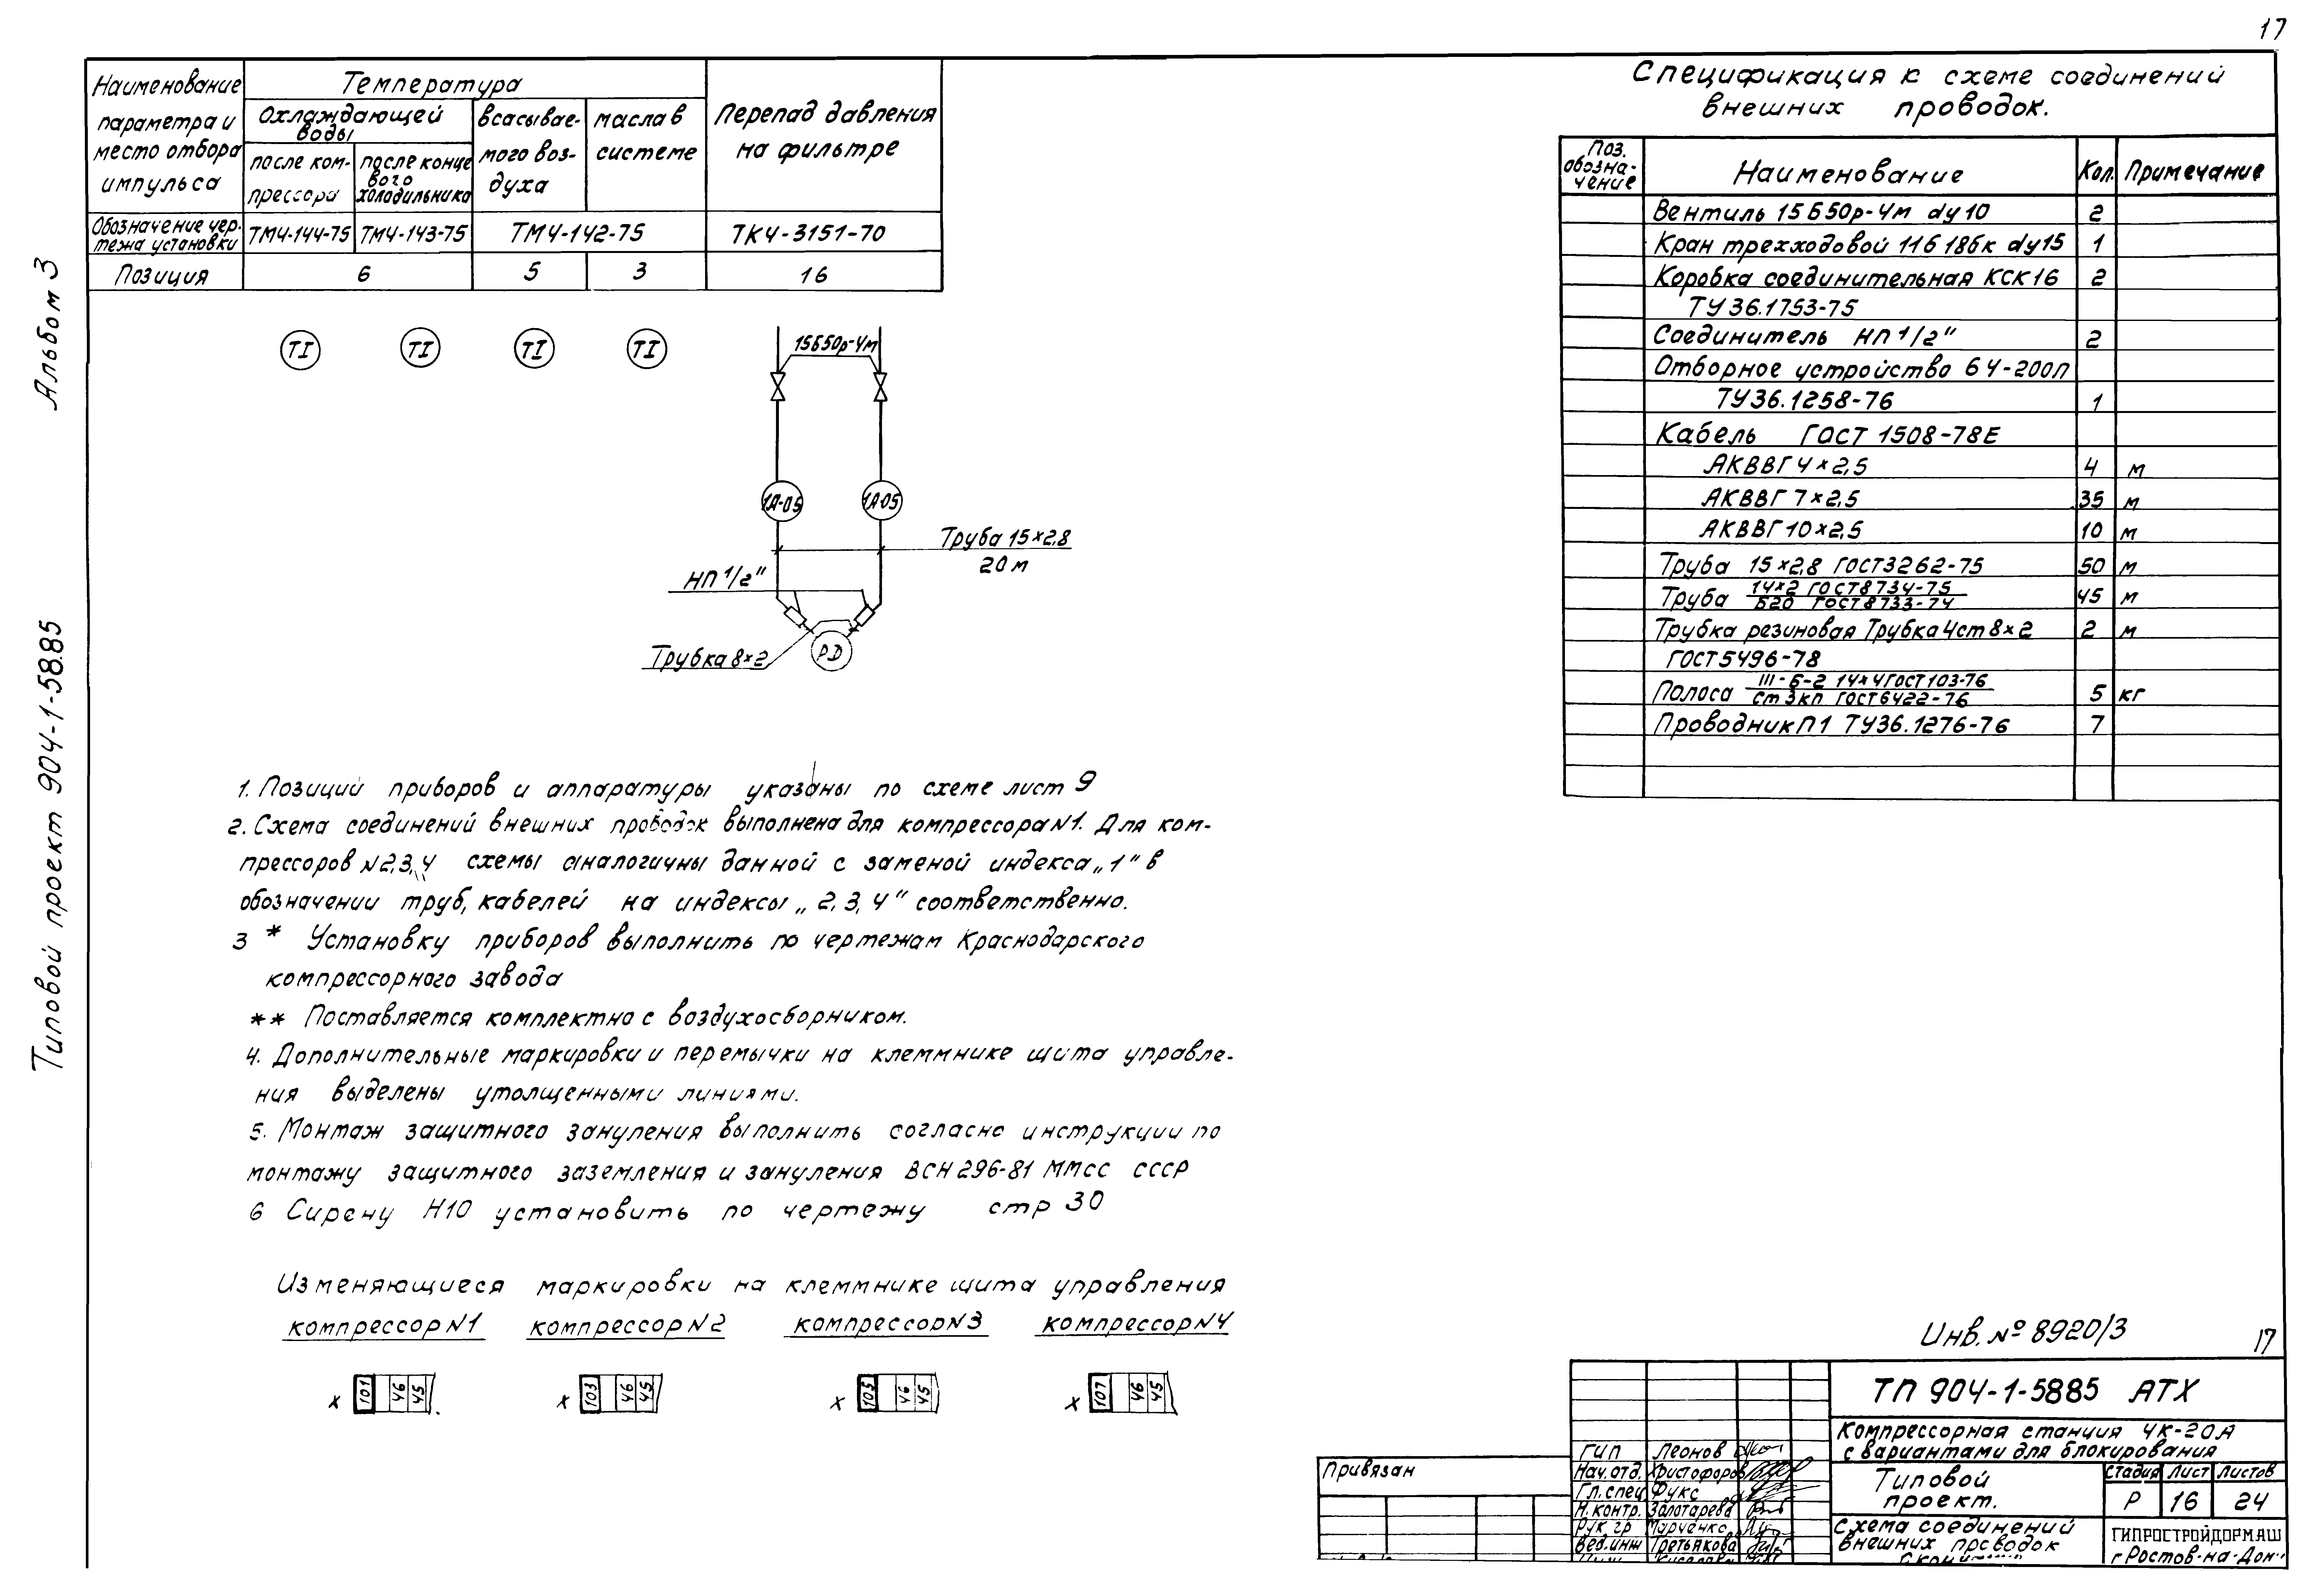 17
Альбом 3
Типовой проект 904-1-58.85
Наименование
параметра и
место отбора
импульса
Температура
Охлаждающей
воды
после ком-
прессора
после конце
вого
холодильника
всасывае-
мого воз-
духа
масла в
системе
Перепад давления
на фильтре
Обозначение чер-
тежа установки
ТМ4-144-75
ТМ4-143-75
ТМ4-142-75
ТК4-3151-70
Позиция
6
5
3
16
TI
TI
TI
TI
15Б50р-4м
1А-05
1А-05
Труба 15×2,8
20 м
НП 1/2"
Трубка 8×2
PD
Спецификация к схеме соединений
внешних проводок.
Поз.
обозна-
чение
Наименование
Кол.
Примечание
Вентиль 15Б50р-4м dу10 2
Кран трехходовой 11б18бк dу15 1
Коробка соединительная КСК16 2
ТУ 36.1753-75
Соединитель НП 1/2" 2
Отборное устройство 64-200П
ТУ36.1258-76 1
Кабель ГОСТ 1508-78Е
АКВВГ 4×2,5 4 м
АКВВГ 7×2,5 35 м
АКВВГ 10×2,5 10 м
Труба 15×2,8 ГОСТ3262-75 50 м
Труба 14×2 ГОСТ8734-75 45 м
Б20 ГОСТ8733-74
Трубка резиновая Трубка 4ст 8×2 2 м
ГОСТ5496-78
Полоса III-Б-2 14×4 ГОСТ103-76 5 кг
Ст 3кп ГОСТ6422-76
Проводник П1 ТУ36.1276-76 7
1. Позиций приборов и аппаратуры указаны по схеме лист 9
2. Схема соединений внешних проводок выполнена для компрессора N1. Для ком-
прессоров N2,3,4 схемы аналогичны данной с заменой индекса „1" в
обозначении труб, кабелей на индексы „2,3,4" соответственно.
3 * Установку приборов выполнить по чертежам Краснодарского
компрессорного завода
** Поставляется комплектно с воздухосборником.
4. Дополнительные маркировки и перемычки на клеммнике щита управле-
ния выделены утолщенными линиями.
5. Монтаж защитного зануления выполнить согласно инструкции по
монтажу защитного заземления и зануления ВСН 296-81 ММСС СССР
6 Сирену Н10 установить по чертежу стр 30
Изменяющиеся маркировки на клеммнике щита управления
компрессор N1
компрессор N2
компрессор N3
компрессор N4
х 101 46 45
х 103 46 45
х 105 46 45
х 107 46 45
Инв. № 8920/3
17
ТП 904-1-5885 АТХ
Компрессорная станция 4К-20А
с вариантами для блокирования
Типовой
проект.
Стадия Лист Листов
Р 16 24
Схема соединений
внешних проводок
ГИПРОСТРОЙДОРМАШ
г Ростов-на-Дон
Привязан
ГИП Леонов
Нач.отд. Христофоров
Гл.спец Фукс
Н.контр. Залотарева
Рук.гр Марченко
Вед.инж Третьякова